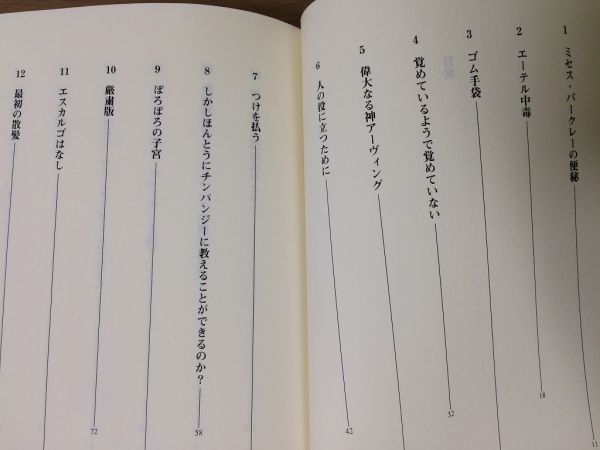 1 ミセス・バークレーの便秘 11
2 エーテル中毒 18
3 ゴム手袋
4 覚めているようで覚めていない 32
5 偉大なる神アーヴィング
6 人の役に立つために 42
7 つけを払う
8 しかしほんとうにチンパンジーに教えることができるのか? 58
9 ぼろぼろの子宮
10 厳粛版 72
11 エスカルゴはなし
12 最初の散髪